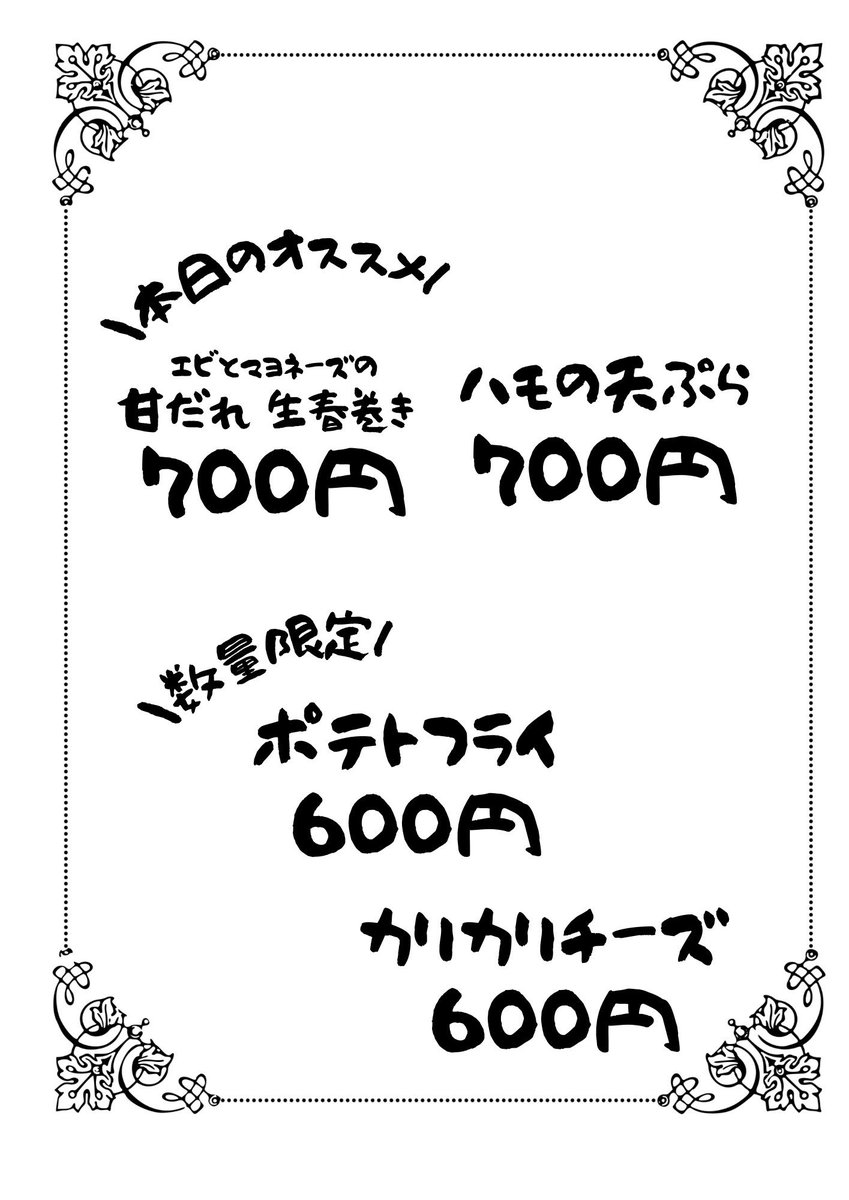 \本日のオススメ/
エビとマヨネーズの
甘だれ 生春巻き
700円
ハモの天ぷら
700円
\数量限定/
ポテトフライ
600円
カリカリチーズ
600円